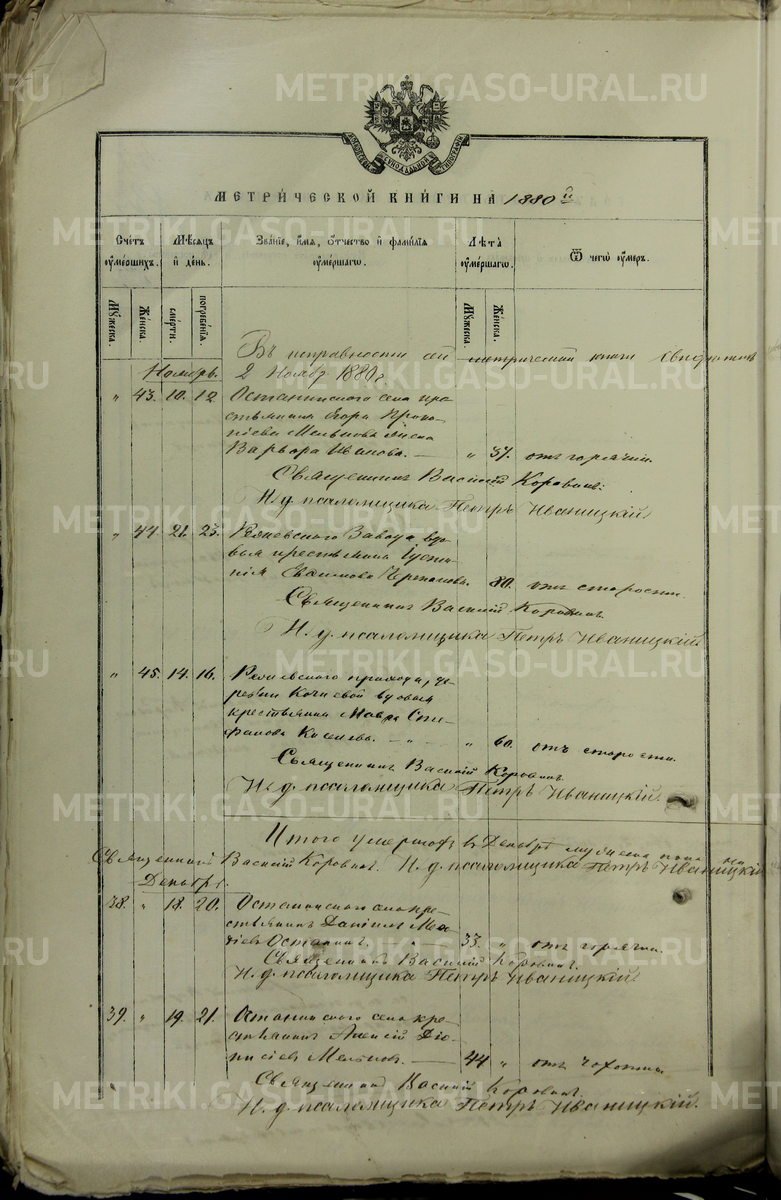 METRIKI.GASO-URAL.RU
МЕТРИ́ЧЕСКОЙ КНИ́ГИ НА 1880 й
Сче́тъ ᲂу҆ме́ршихъ.
Мѣ́сяцъ и҆ де́нь.
Зва́нїе, и҆́мя, ѻ҆́тчество и҆ фами́лїя ᲂу҆ме́ршагѡ.
Лѣ́та ᲂу҆ме́ршагѡ.
Ѿ чегѡ̀ ᲂу҆́меръ.
Мꙋ́жеска.
Же́нска.
сме́рти.
погребе́нїя.
Мꙋ́жеска.
Же́нска.
Въ исправности сей метрической книги
Ноябрь. 2 Ноябр 1880 г.
" 43. 10. 12. Останинскаго села кре-
стьянина Егора Проко-
піева Мельнова жена
Варвара Иванова. — " 37. отъ горячки.
Священникъ Василій Коровинъ.
И. д. псаломщика Петръ Иваницкій
" 44. 21. 23. Завода вдо-
вая крестьянка Іусти-
нія 80. отъ старости.
Священникъ Василій Коровинъ.
И. д. псаломщика Петръ Иваницкій
" 45. 14. 16. прихода, де-
ревни вдовая
крестьянка Мавра Сте-
фанова — " 60. отъ старости.
Священникъ Василій Коровинъ
И. д. псаломщика Петръ Иваницкій
Итого умершихъ въ Декабрѣ мужеска пола
Священникъ Василій Коровинъ И. д. псаломщика Петръ Иваницкій
Декабрь.
38. " 18. 20. Останинскаго села кре-
стьянинъ Даніилъ
Останинъ. — 33. " отъ горячки.
Священникъ Василій Коровинъ
И. д. псаломщика Петръ Иваницкій
39. " 19. 21. Останинскаго села кре-
стьянинъ Алексій Діо-
нисіевъ Мельновъ. — 44 " отъ чахотки.
Священникъ Василій Коровинъ.
И. д. псаломщика Петръ Иваницкій.